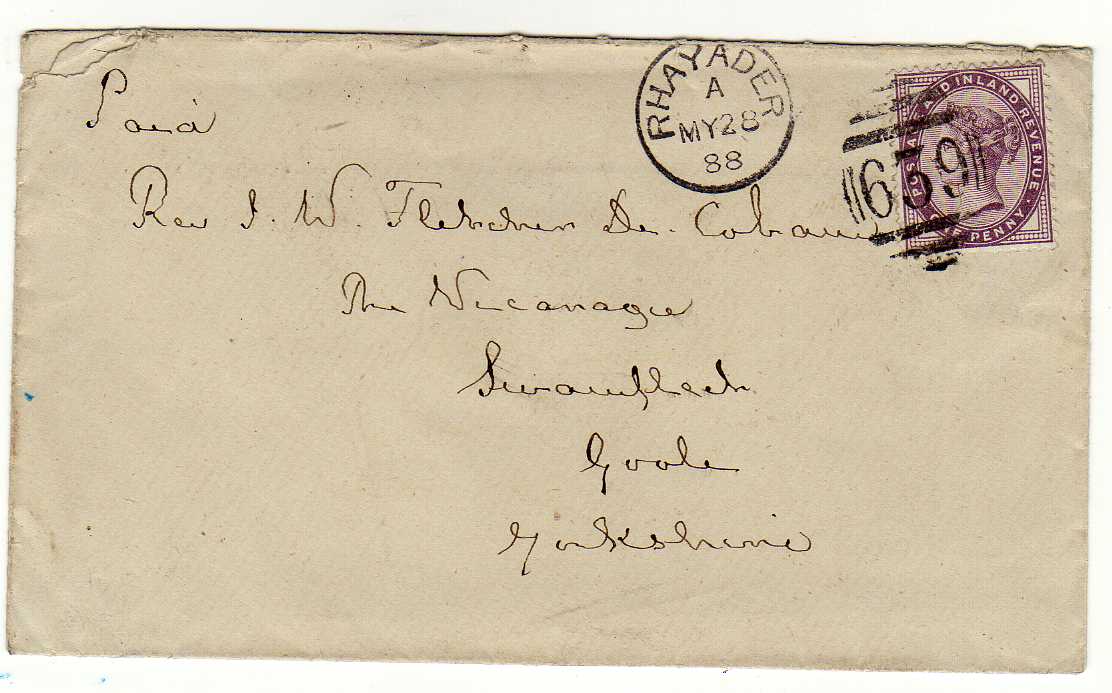 Paid
RHAYADER
A
MY28
88
639
POSTAGE AND INLAND REVENUE
ONE PENNY
Rev J. W. Fletcher De.
The Vicarage
Swinefleet
Goole
Yorkshire